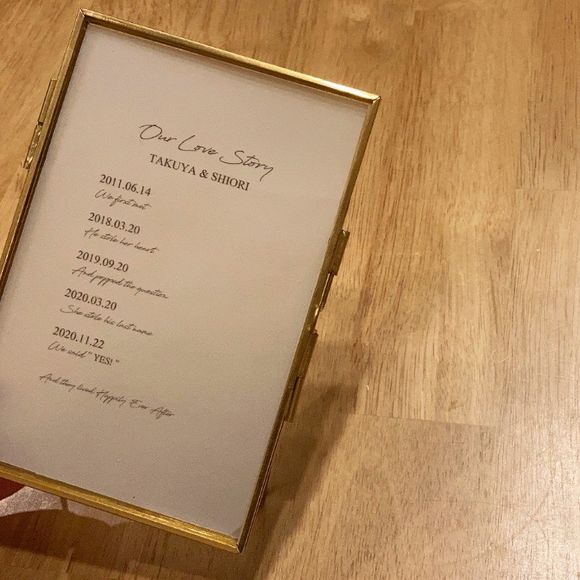 Our Love Story
TAKUYA & SHIORI
2011.06.14
We first met
2018.03.20
He stole her heart
2019.09.20
And popped the question
2020.03.20
She stole his last name
2020.11.22
We said " YES! "
And they lived Happily Ever After